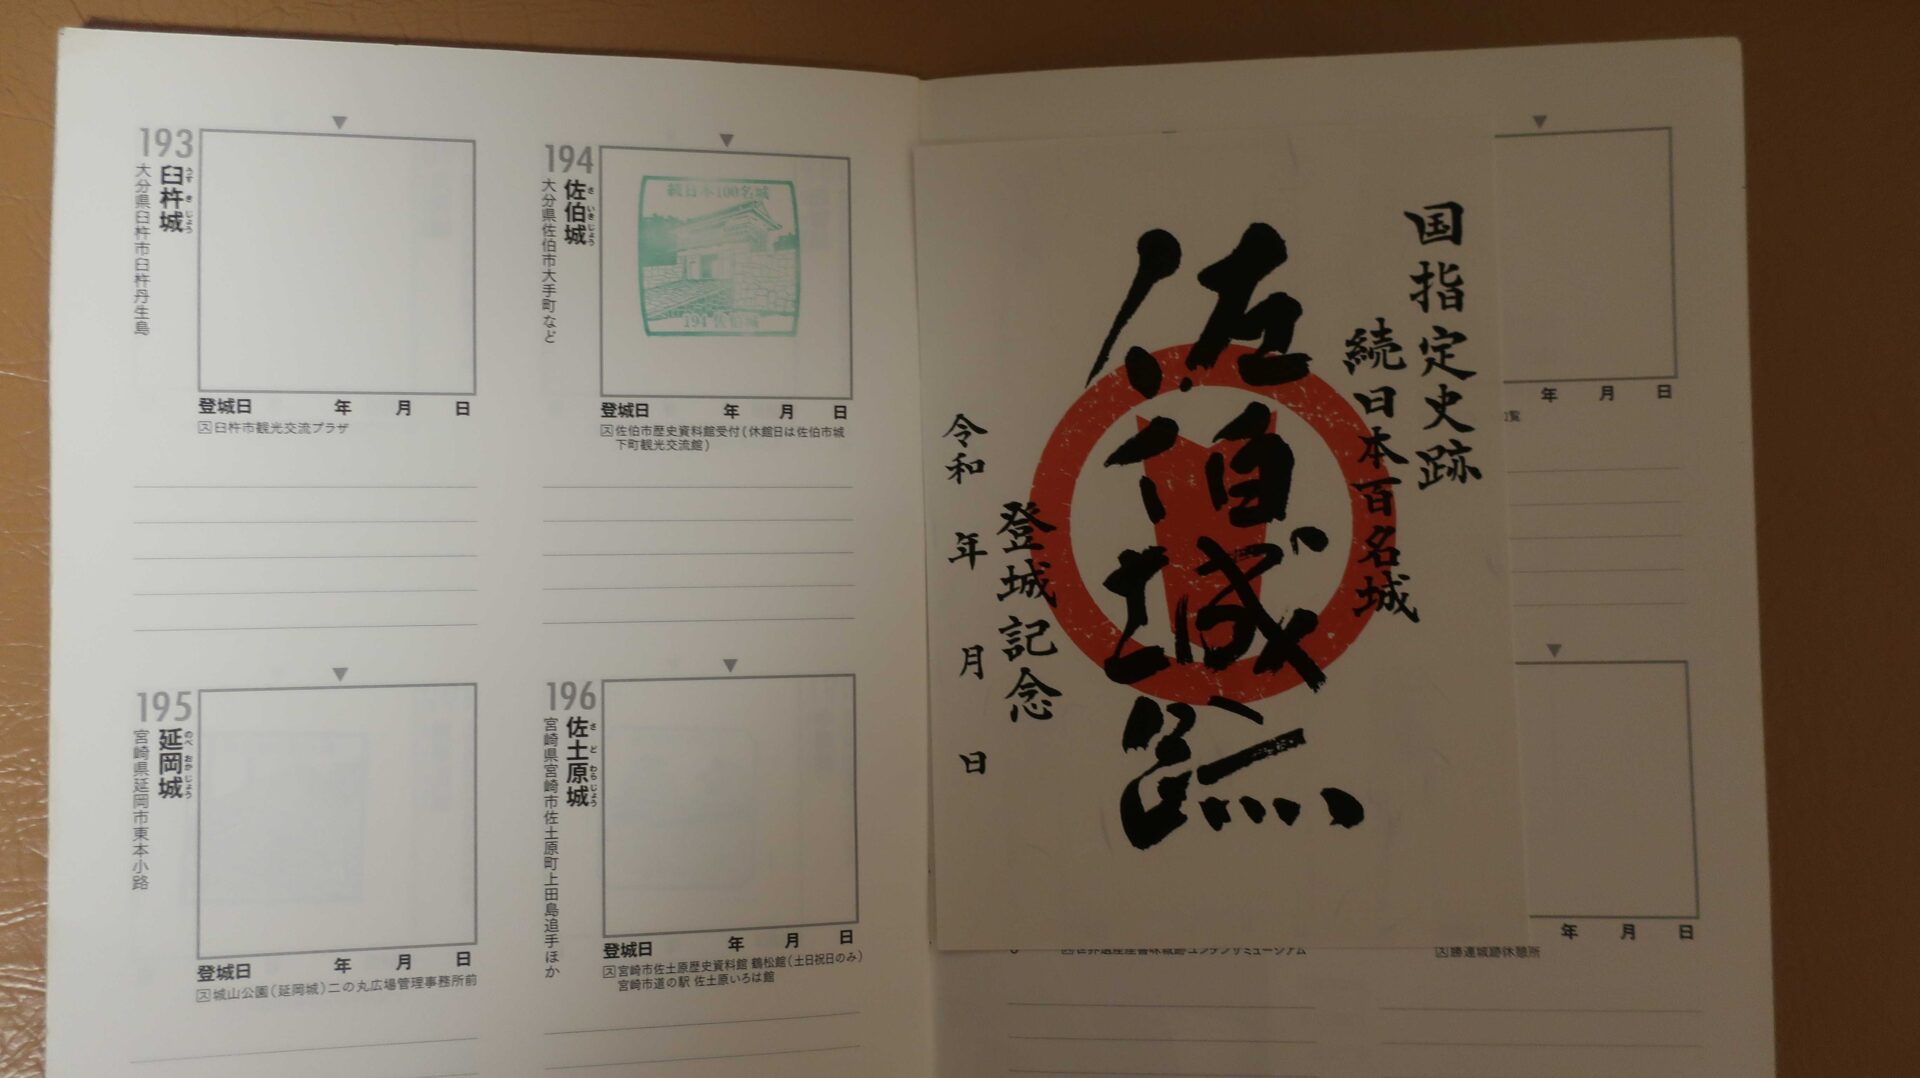 193
臼杵城
うすきじょう
大分県臼杵市臼杵丹生島
登城日 年 月 日
ス 臼杵市観光交流プラザ
194
佐伯城
さいきじょう
大分県佐伯市大手町など
続日本100名城
194 佐伯城
登城日 年 月 日
ス 佐伯市歴史資料館受付(休館日は佐伯市城
下町観光交流館)
195
延岡城
のべおかじょう
宮崎県延岡市東本小路
登城日 年 月 日
ス 城山公園(延岡城)二の丸広場管理事務所前
196
佐土原城
さどわらじょう
宮崎県宮崎市佐土原町上田島追手ほか
登城日 年 月 日
ス 宮崎市佐土原歴史資料館 鶴松館(土日祝日のみ)
宮崎市道の駅 佐土原いろは館
国指定史跡
続日本百名城
佐伯城跡
登城記念
令和 年 月 日
年 月 日
覧
年 月 日
ス 勝連城跡休憩所